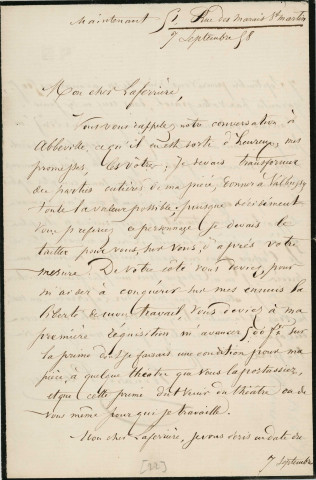 Maintenant 51, Rue des marais St Martin
7 Septembre 58
Mon cher Laferrière,
Vous vous rappelez notre conversation à
Abbeville, ce qu'il en est sorti d'heureux, mes
promesses, les vôtres. Je devais transformer
des parties entières de ma pièce, donner à
toute la valeur possible, puisque décidément
vous préférez ce personnage. Je devais le
tailler pour vous, sur vous, d'après votre
mesure. De votre côté vous deviez, pour
m'aider à conquérir sur mes ennuis la
liberté de mon travail, vous deviez à ma
première réquisition m'avancer 500 fs sur
la prime dont je faisais une condition pour ma
pièce, à quelque théâtre que vous la portassiez,
et que cette prime dût venir du théâtre ou de
vous même pourvu que je travaille.
Mon cher Laferrière, je vous écris en date du
7 Septembre
[22]